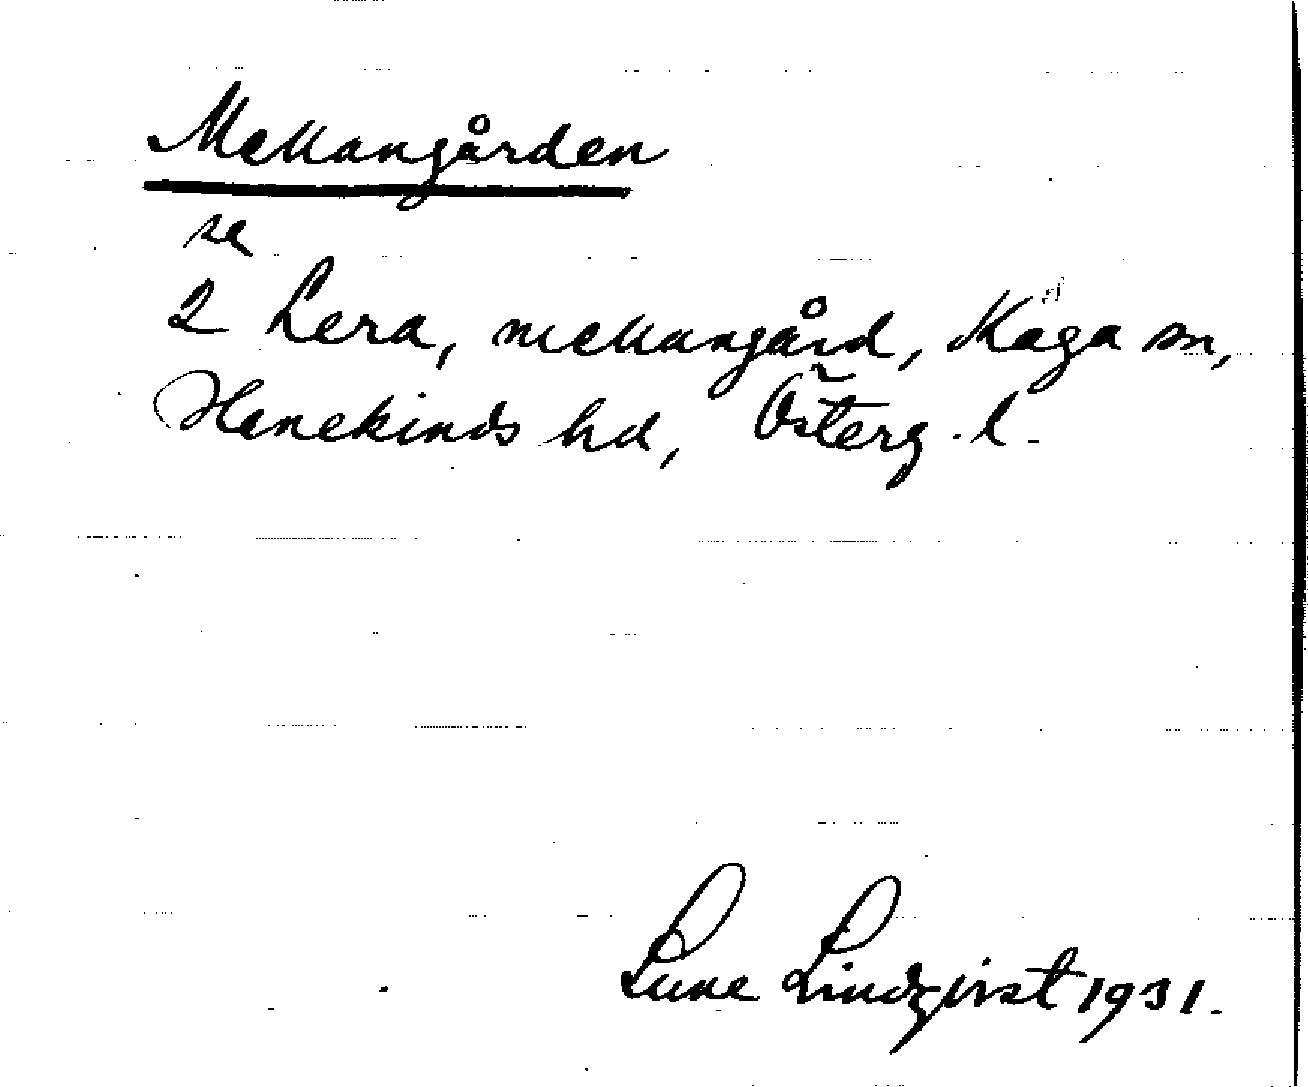 Mellangården
se
2 Lera, mellangård, Kaga sn,
Hanekinds hd, Österg. l.
Sune Lindqvist 1931.